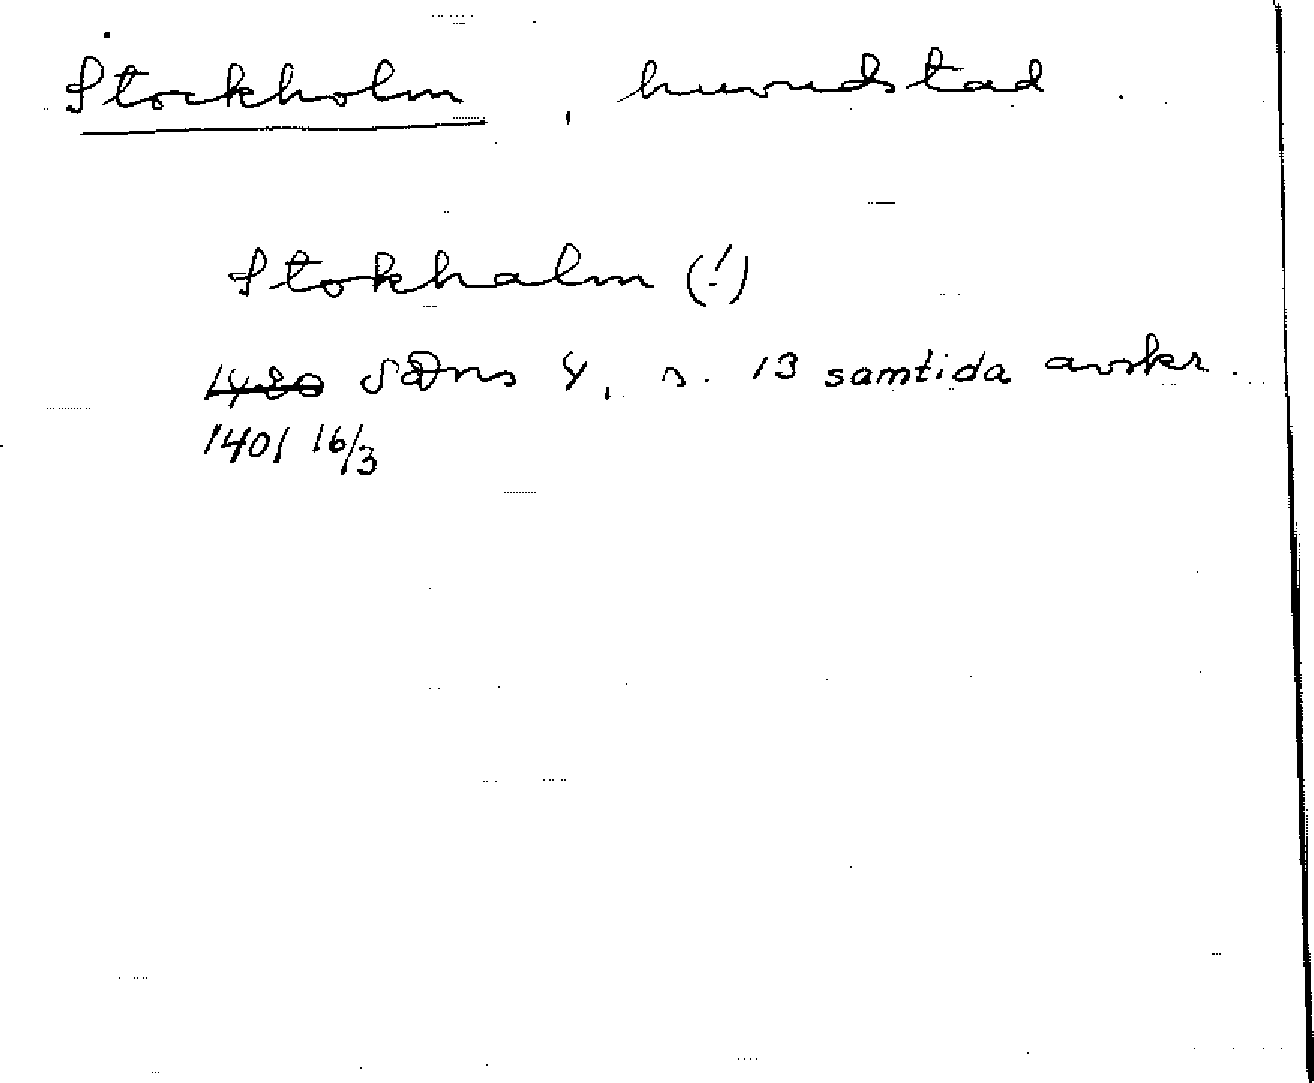 Stockholm, huvudstad
Stokhalm (!)
1480 SDns 4, s. 13 samtida avskr.
1401 16/3